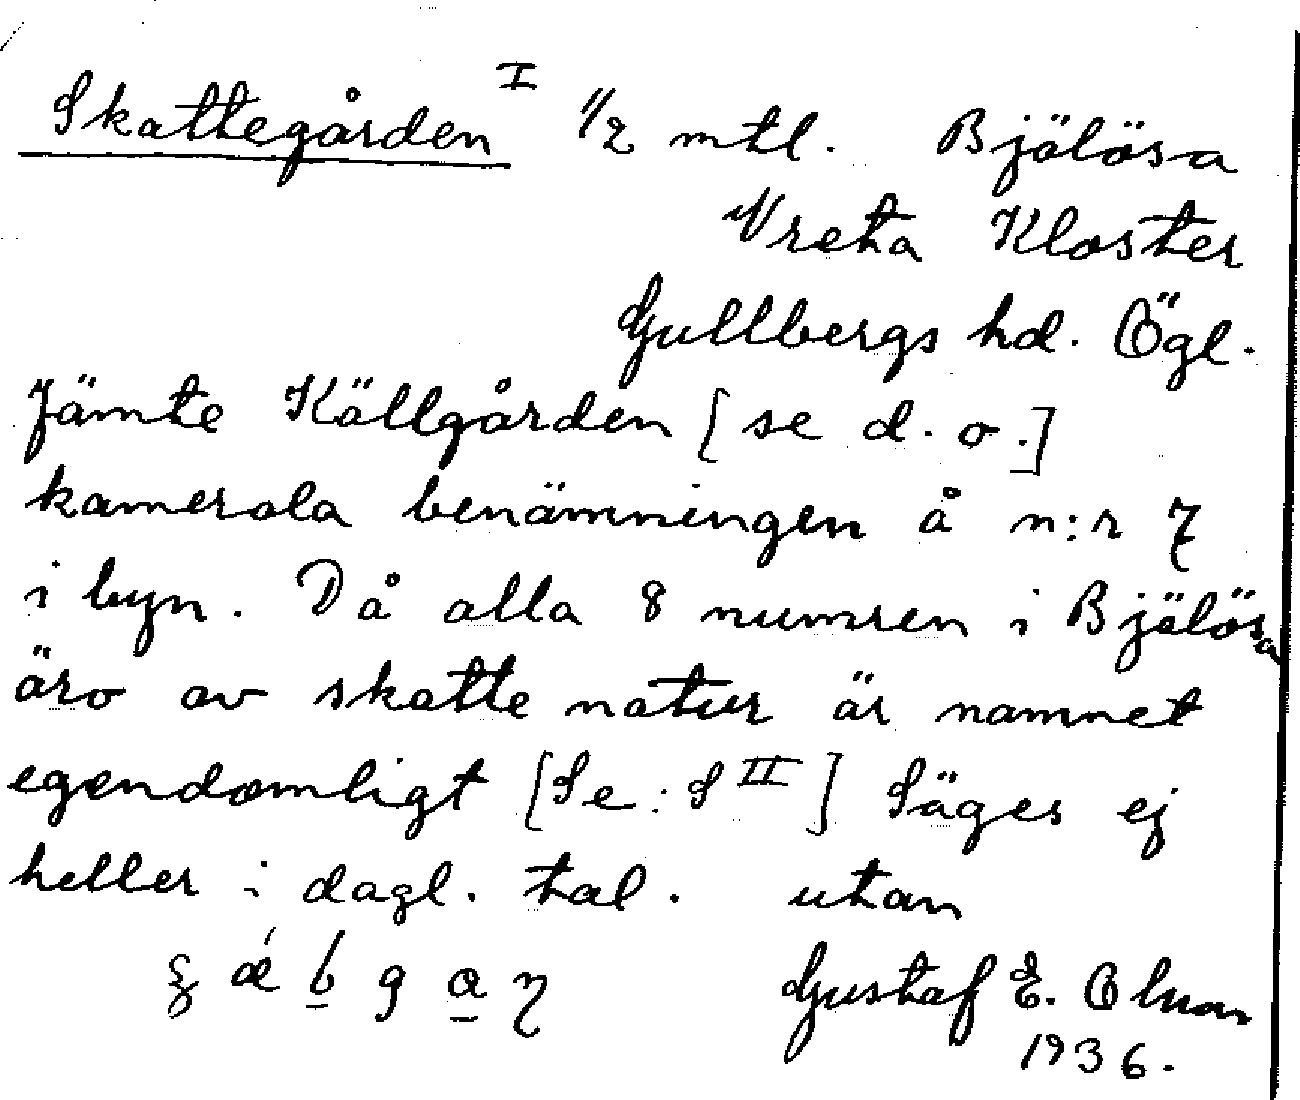 Skattegården I 1/2 mtl. Bjälösa
Vreta Kloster
Gullbergs hd. Ögl.
Jämte Källgården [se d. o.]
kamerala benämningen å n:r 7
i byn. Då alla 8 numren i Bjälösa
äro av skatte natur är namnet
egendomligt [Se: S II] Säges ej
heller i dagl. tal. utan
Gustaf E. Olson
1936.